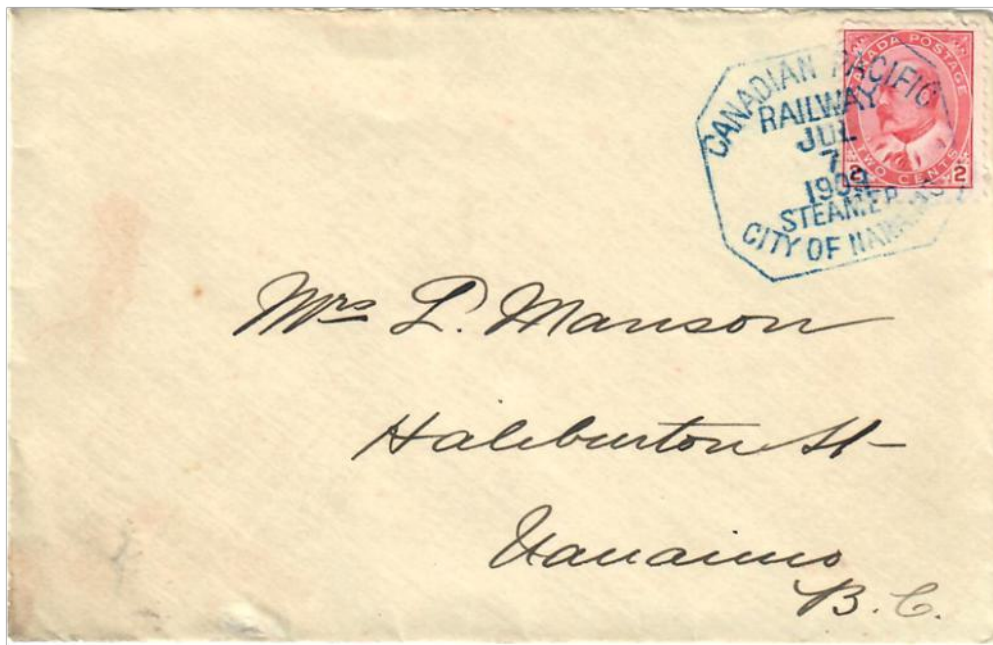 CANADIAN PACIFIC
RAILWAY
JUL
7
1908
STEAMER
CITY OF NANAIMO
CANADA POSTAGE
2 TWO CENTS 2
Mrs L. Manson
Haliburton St
Nanaimo
B.C.